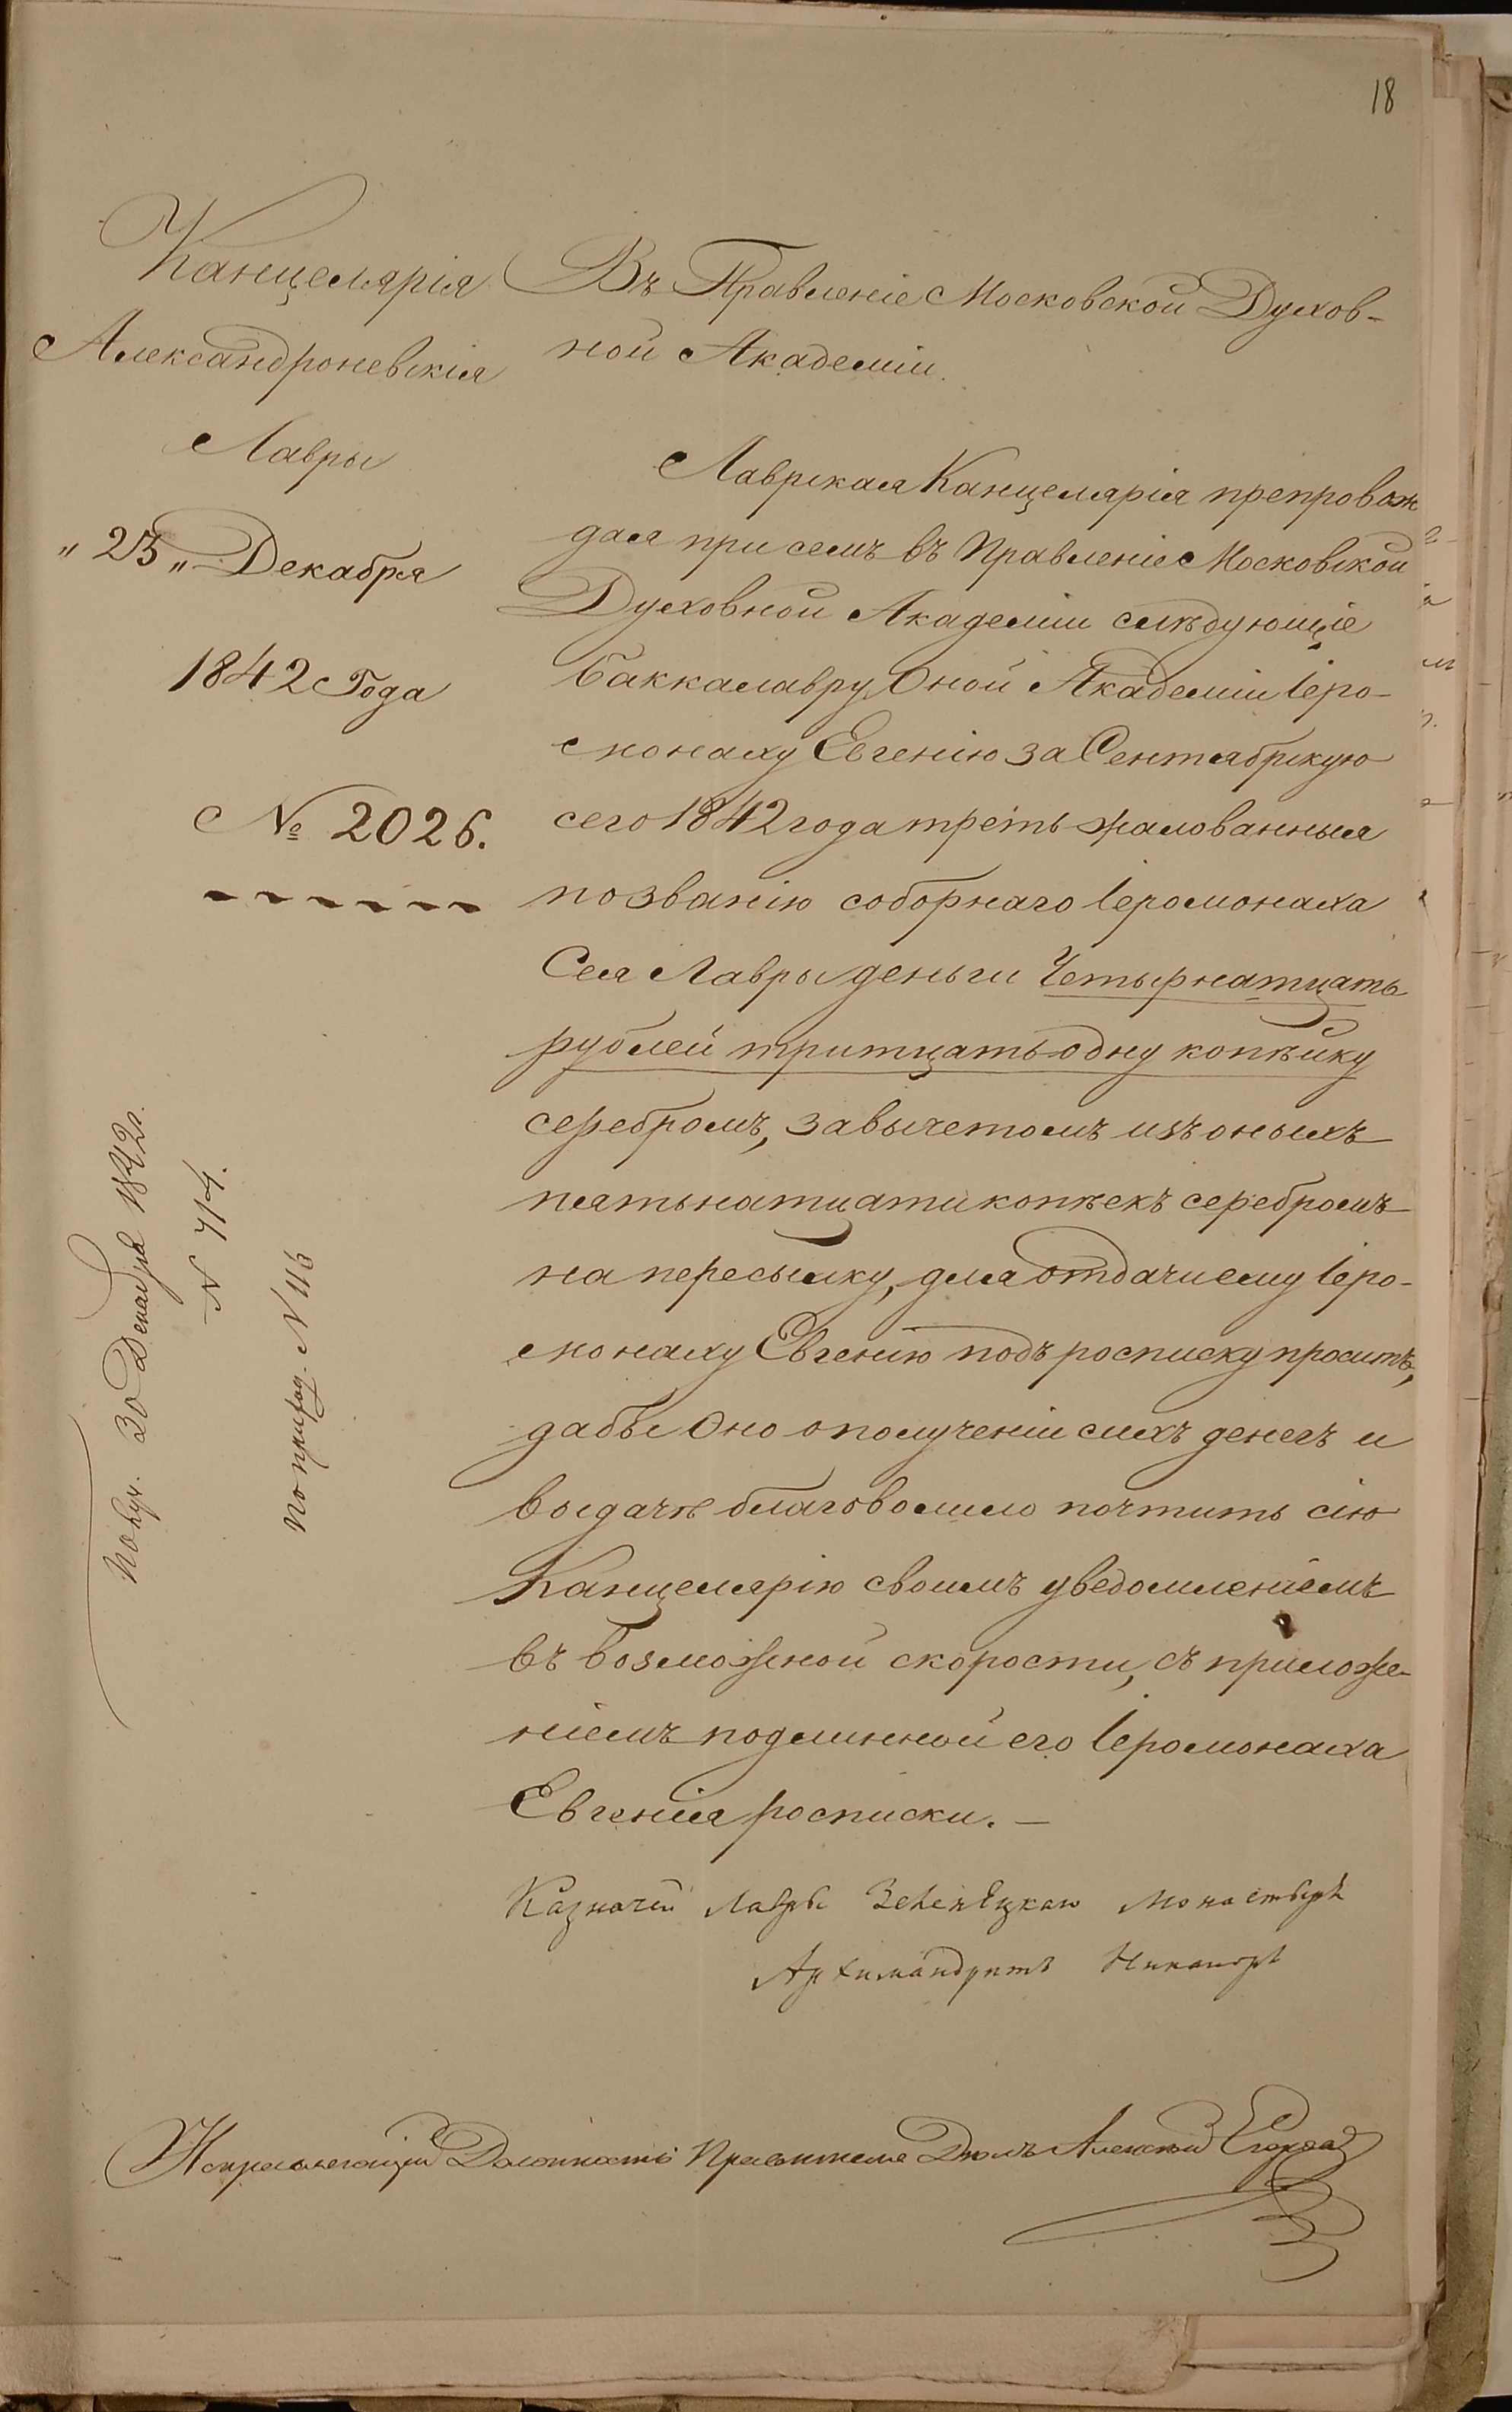 18
Канцелярія
Александроневскія
Лавры
„ 23 „ Декабря
1842 Года
№ 2026.
Въ Правленіе Московской Духов-
ной Академіи.
Лаврская Канцелярія препровож
дая при семъ въ Правленіе Московской
Духовной Академіи слѣдующіе
баккалавру Оной Академіи Іеро-
монаху Евгенію за Сентябрскую
сего 1842 года треть жалованныя
по званію соборнаго Іеромонаха
Сея Лавры деньги Четырнатцать
рублей тритцать одну копѣйку
серебромъ, за вычетомъ изъ оныхъ
пятьнатцати копѣекъ серебромъ
на пересылку, для отдачи ему Іеро-
монаху Евгенію подъ росписку проситъ,
дабы Оно о полученіи сихъ денегъ и
выдачѣ благоволило почтить сію
Канцелярію своимъ уведомленіемъ
въ возможной скорости, съ приложе-
ніемъ подлинной его Іеромонаха
Евгенія росписки. —
Казначей Лавры Зеленецкаго Монастыря
Архимандритъ Никаноръ
Исправляющій Должность Правителя Дѣлъ Алексѣй Егоровъ
Получ. 30 Декабря 1842 г.
N 714.
По приход. N 116